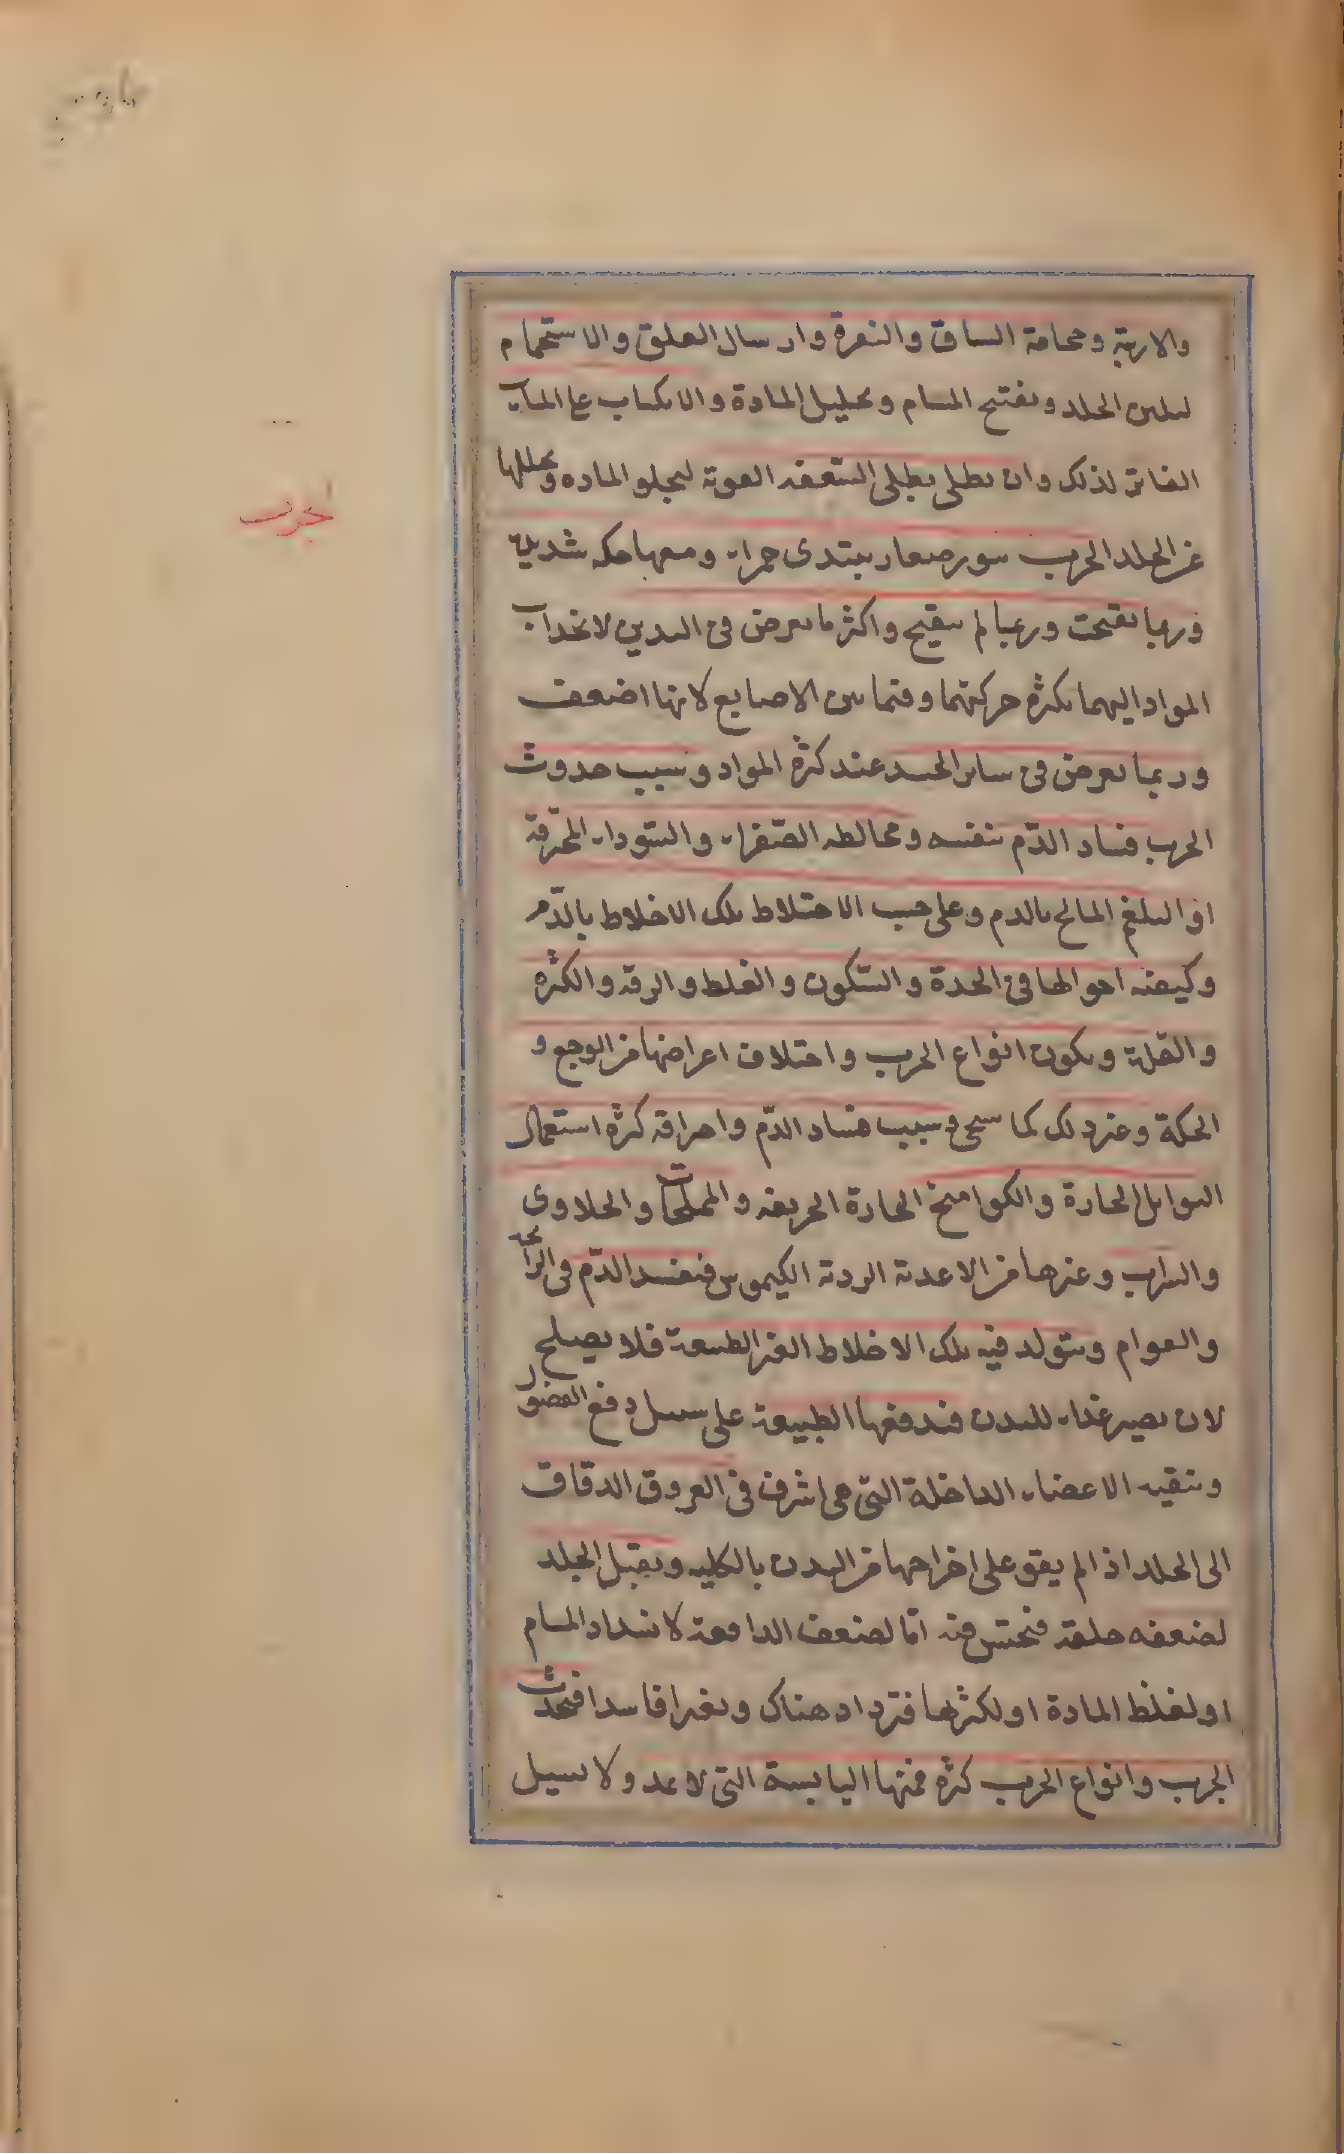 والارنبة وحجامة الساق والنقرة وارسال العلق والاستحمام
لتليين الجلد وتفتيح المسام وتحليل المادة والانكباب على الماء
الفاتر لذلك وان يطلى بطلى السعفه القوية ليجلو الماده ويحللها
عن الجلد الجرب بثور صغار يبتدى حمراء ومعها حكه شديده
وربما تقيحت وربما لم يتقيح واكثر ما يعرض في اليدين لانجذاب
المواد اليهما بكثرة حركتهما وفيما بين الاصابع لانها اضعف
وربما يعرض في ساير الجسد عند كثرة المواد وسبب حدوث
الجرب فساد الدّم بنفسه ومخالطه الصّفراء والسّوداء المحترقة
او البلغم المالح بالدم وعلى حسب الاختلاط تلك الاخلاط بالدّم
وكيفيه احوالها في الحدة والسّكون والغلظ والرقه والكثره
والقلة ويكون انواع الجرب واختلاف اعراضها من الوجع و
الحكة وغير ذلك كما سيجى وسبب فساد الدّم واحراقه كثرة استعمال
التوابل الحارة والكواميخ الحارة الحريفه والمملحات والحلاوى
والشراب وغيرها من الاغذية الردية الكيموس فيفسد الدّم في الرائحه
والقوام ويتولد فيه تلك الاخلاط الغير الطبيعة فلا يصلح
لان يصير غذاء للبدن فيدفعها الطبيعة على سبيل دفع الفضول
وتنقيه الاعضاء الداخلة التي هي اشرف في العروق الدقاق
الى الجلد اذا لم يقو على اخراجها من البدن بالكليه ويقبل الجلد
لضعفه خلقة فيحتبس فيه امّا لضعف الدافعة لانسداد المسام
او لغلظ المادة او لكثرتها فتزداد هناك وتغيرا فاسدا فيحدث
الجرب وانواع الجرب كثرة فمنها اليابسة التي لا تمد ولا يسيل
الجرب